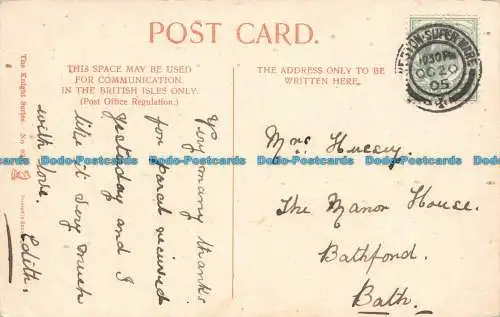 POST CARD.
THIS SPACE MAY BE USED
FOR COMMUNICATION
IN THE BRITISH ISLES ONLY.
(Post Office Regulation.)
THE ADDRESS ONLY TO BE
WRITTEN HERE.
WESTON-SUPER-MARE
10.30 PM
OC 20
05
The Knight Series. No
Very many thanks
for parcel received
yesterday and I
like it very much
with love.
Edith.
Mrs Hussey.
The Manor House.
Bathford.
Bath.
Dodo-Postcards Dodo-Postcards Dodo-Postcards Dodo-Postcards Dodo-Postcards Dodo-Postcards